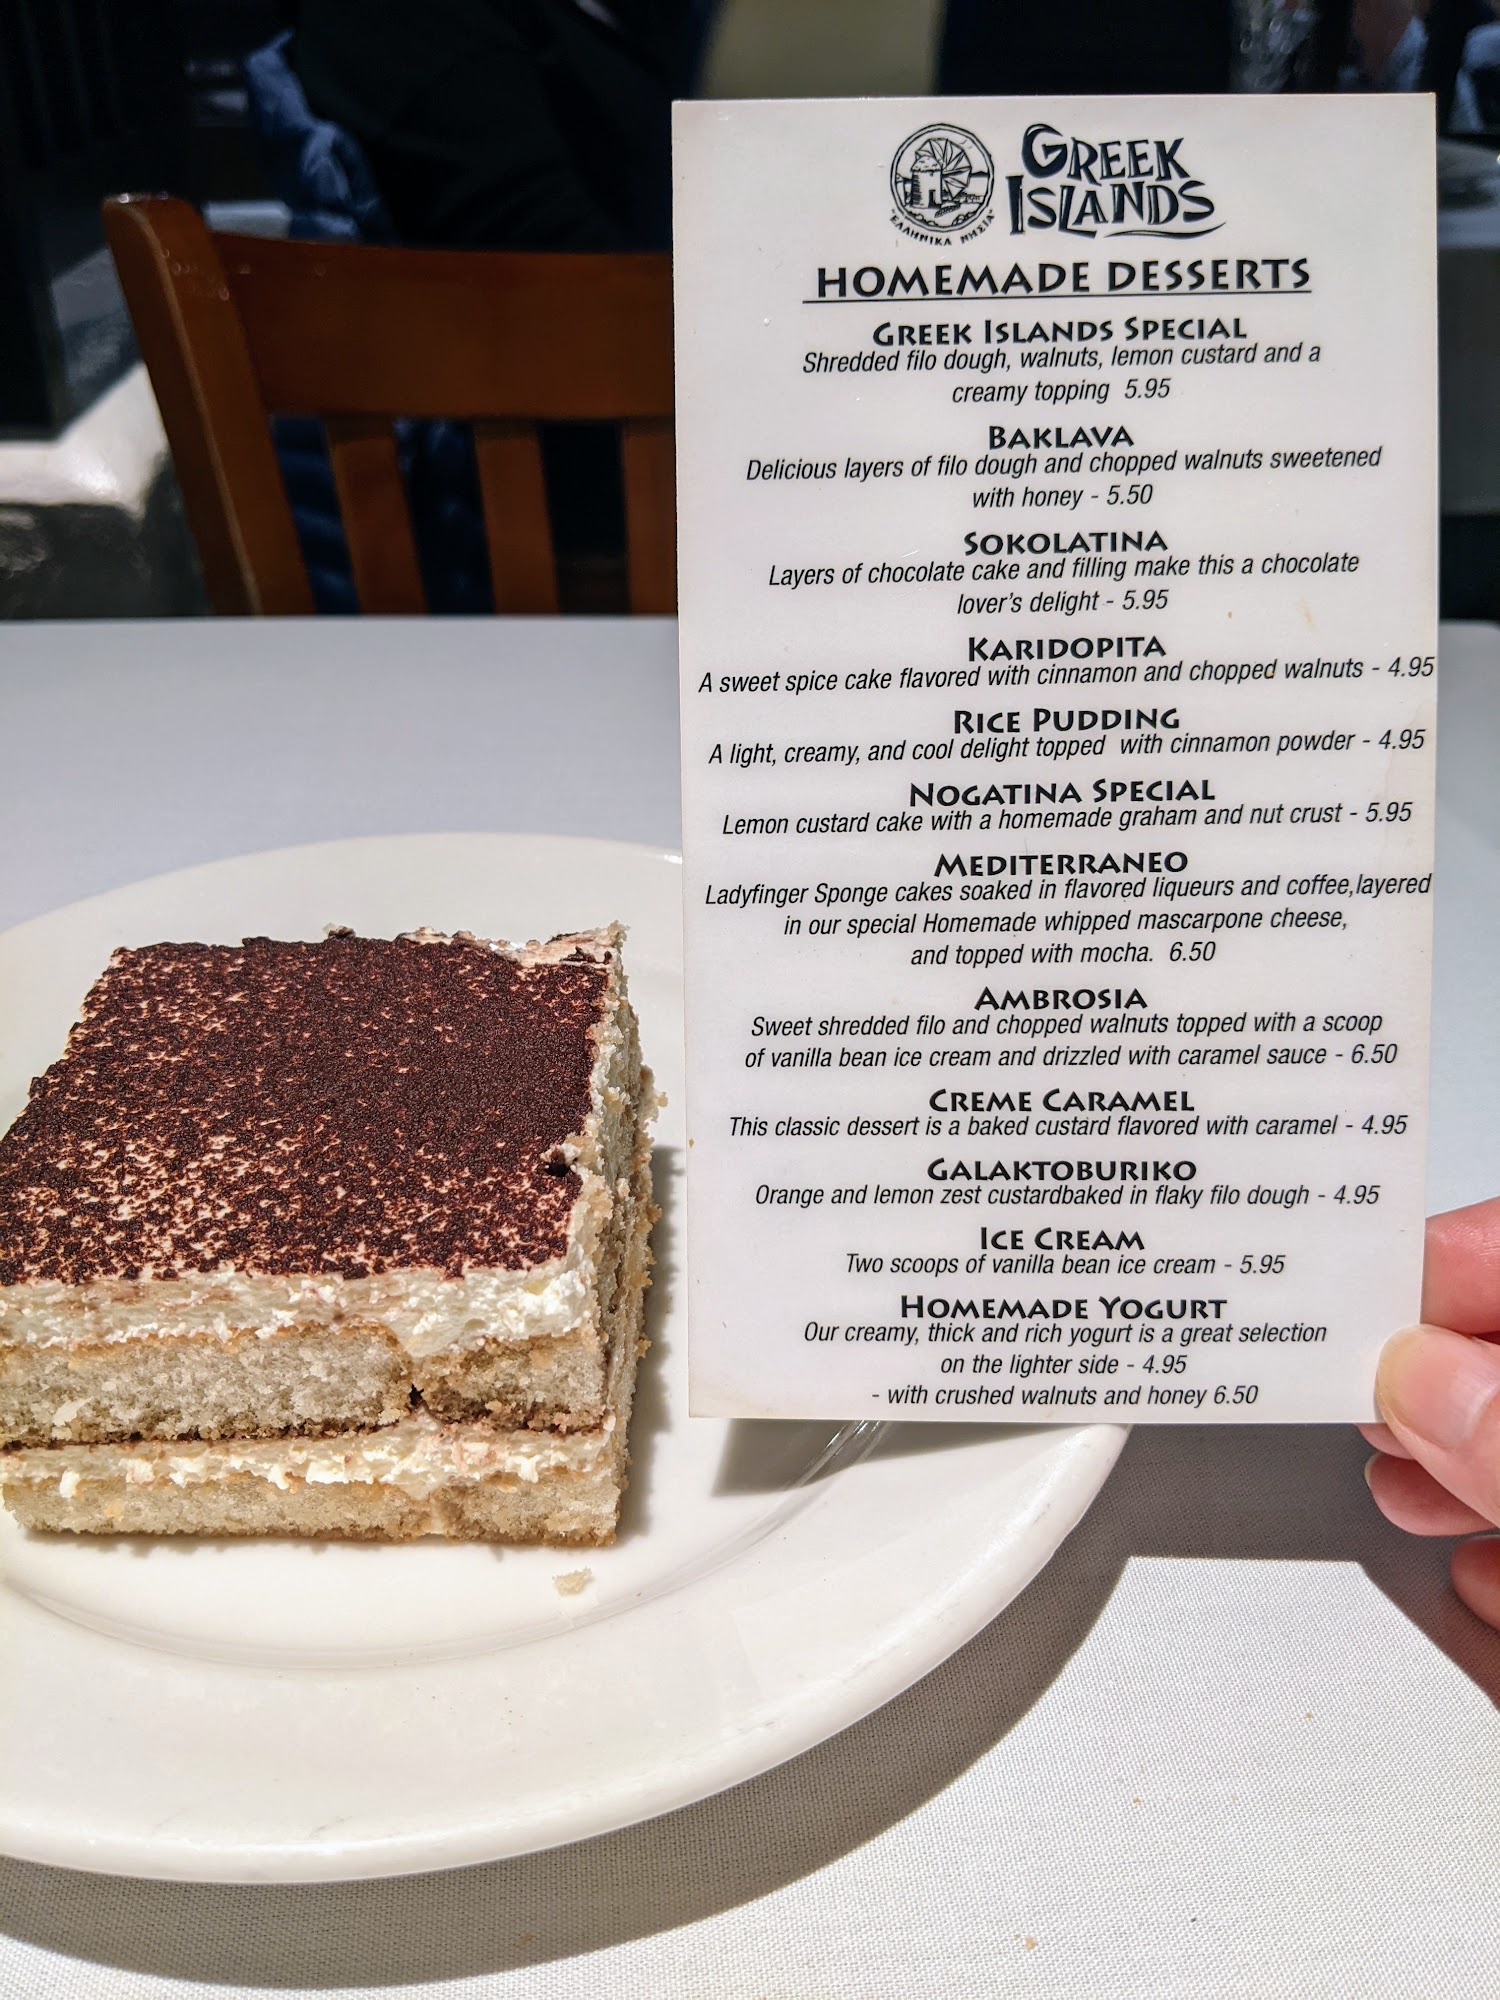 GREEK
ISLANDS
"ΕΛΛΗΝΙΚΑ ΝΗΣΙΑ"
HOMEMADE DESSERTS
GREEK ISLANDS SPECIAL
Shredded filo dough, walnuts, lemon custard and a
creamy topping 5.95
BAKLAVA
Delicious layers of filo dough and chopped walnuts sweetened
with honey - 5.50
SOKOLATINA
Layers of chocolate cake and filling make this a chocolate
lover's delight - 5.95
KARIDOPITA
A sweet spice cake flavored with cinnamon and chopped walnuts - 4.95
RICE PUDDING
A light, creamy, and cool delight topped with cinnamon powder - 4.95
NOGATINA SPECIAL
Lemon custard cake with a homemade graham and nut crust - 5.95
MEDITERRANEO
Ladyfinger Sponge cakes soaked in flavored liqueurs and coffee,layered
in our special Homemade whipped mascarpone cheese,
and topped with mocha. 6.50
AMBROSIA
Sweet shredded filo and chopped walnuts topped with a scoop
of vanilla bean ice cream and drizzled with caramel sauce - 6.50
CREME CARAMEL
This classic dessert is a baked custard flavored with caramel - 4.95
GALAKTOBURIKO
Orange and lemon zest custardbaked in flaky filo dough - 4.95
ICE CREAM
Two scoops of vanilla bean ice cream - 5.95
HOMEMADE YOGURT
Our creamy, thick and rich yogurt is a great selection
on the lighter side - 4.95
- with crushed walnuts and honey 6.50